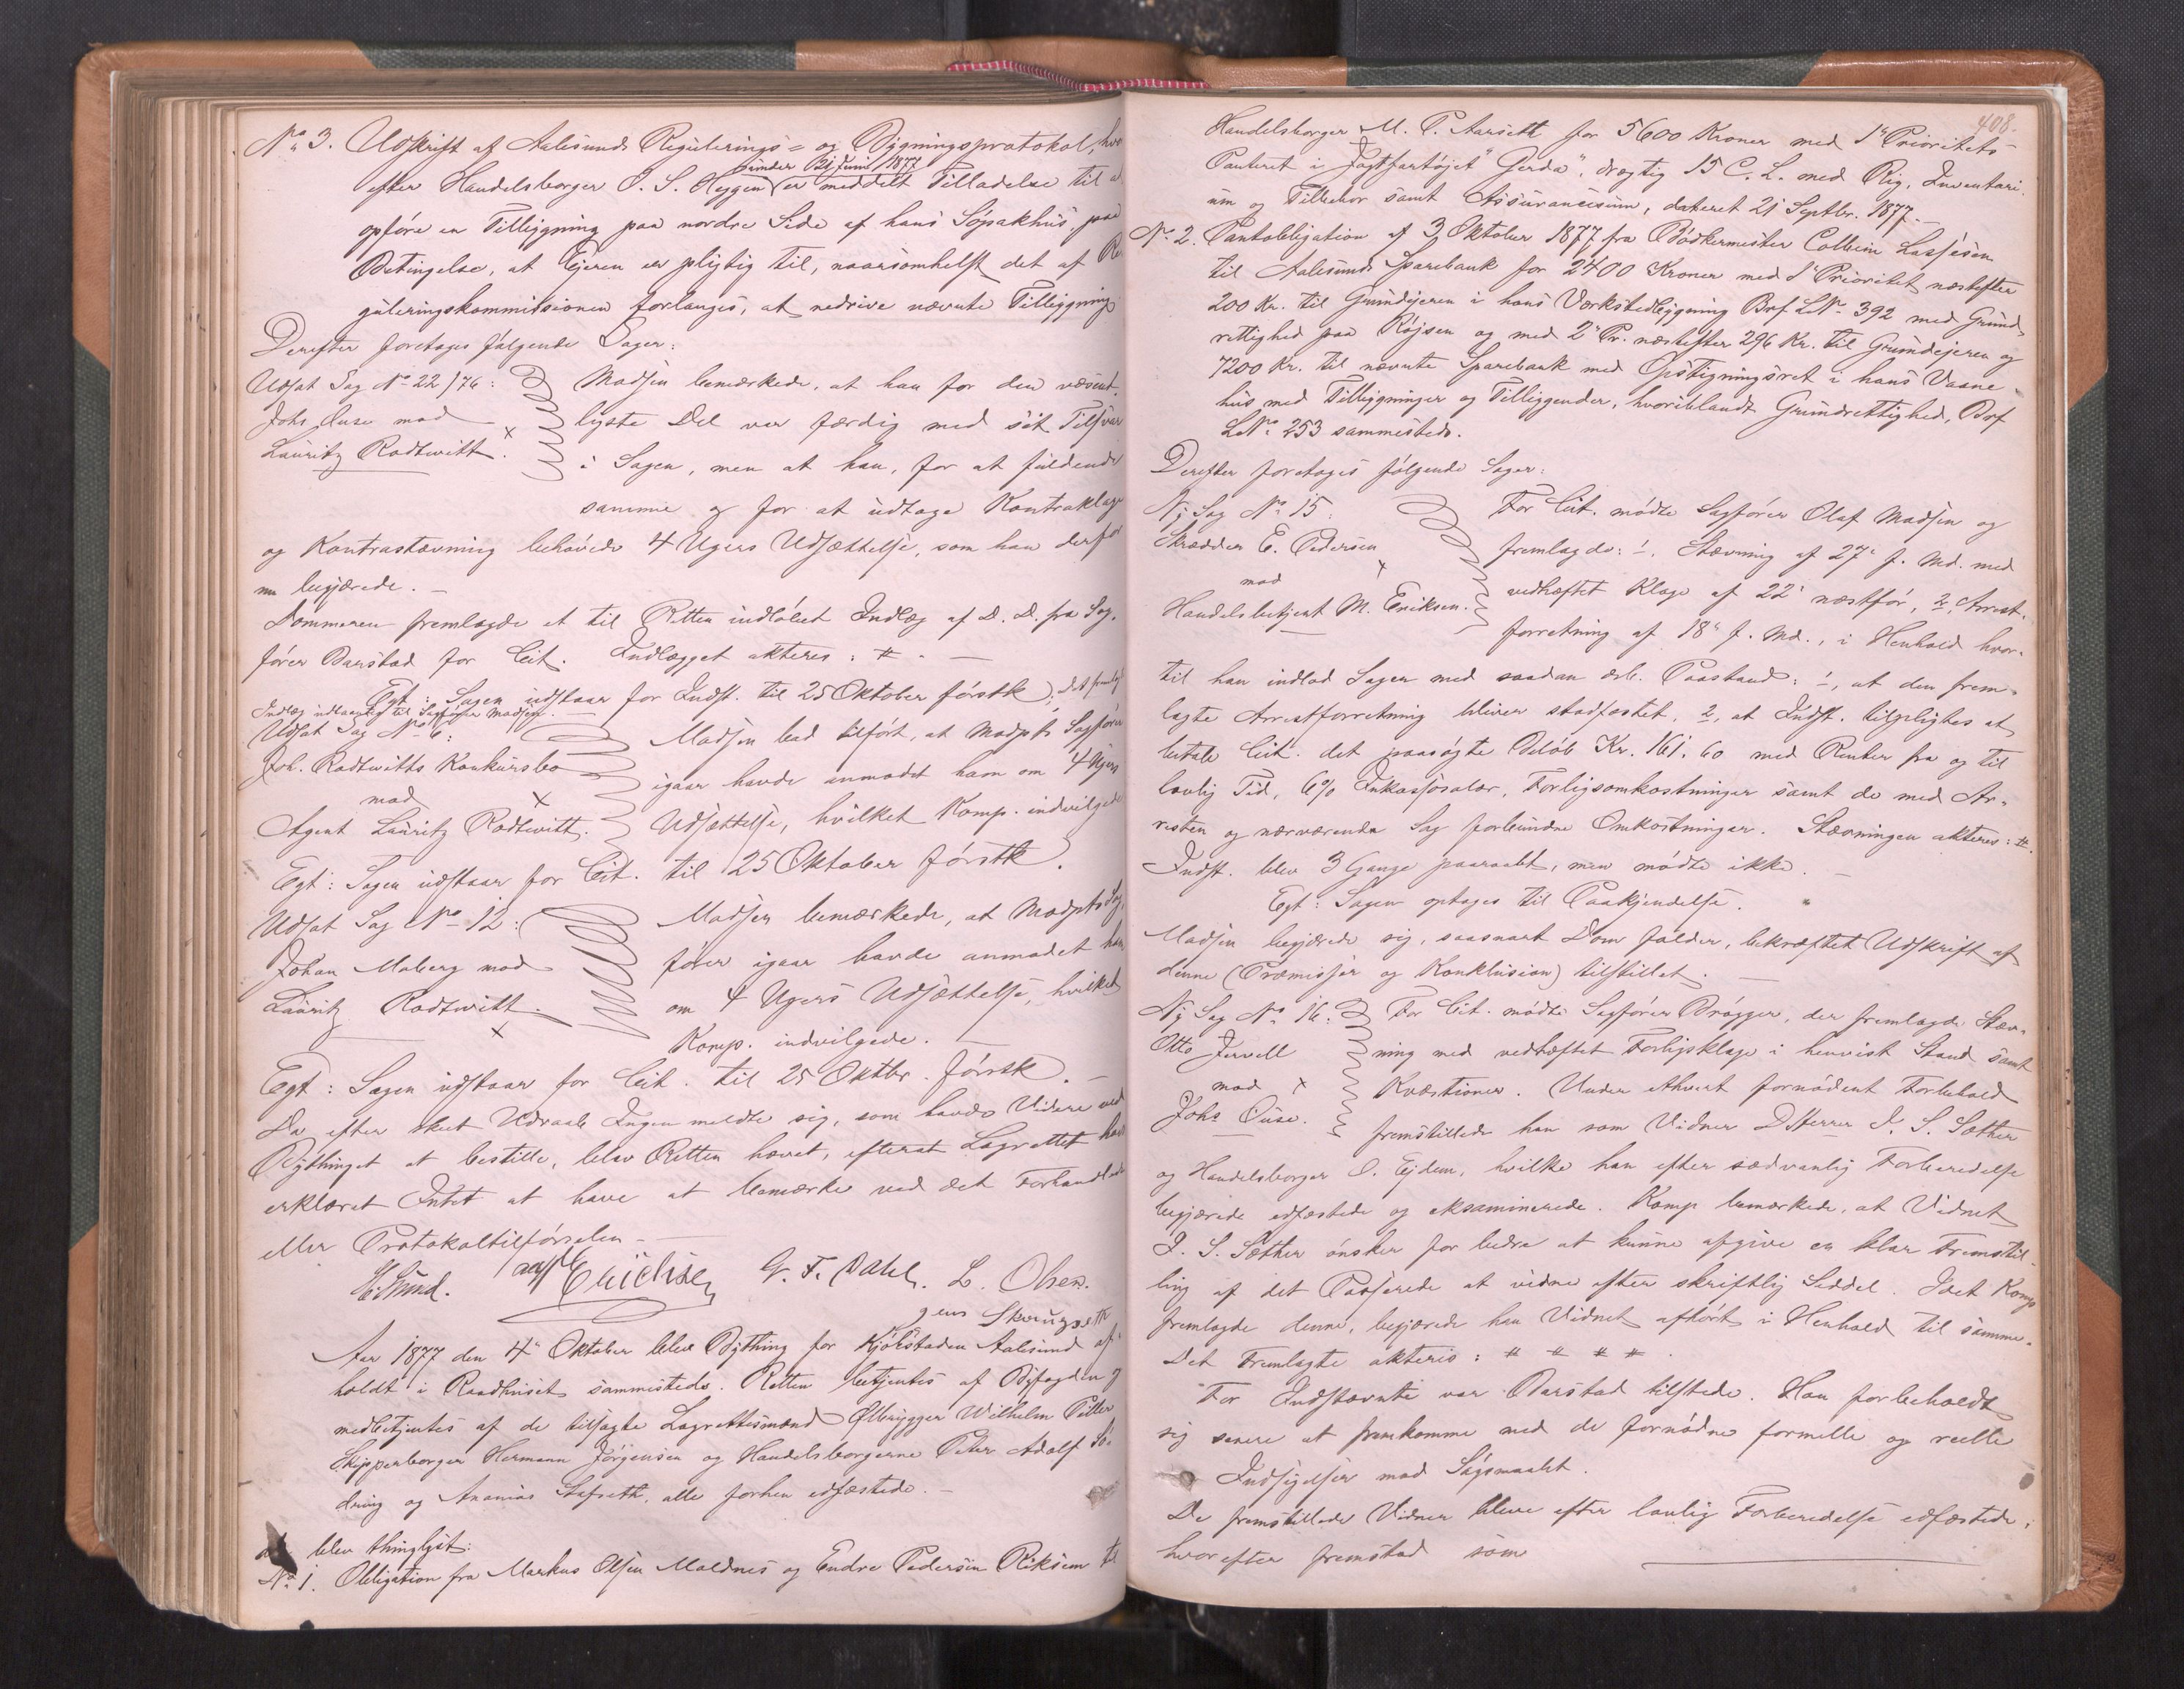 No 3. Udskrift af Aalesunds Regulerings- og Bygningsprotokol, hvor
under 21 Juni 1877
efter Handelsborger J. S. Heggen er meddelt Tilladelse til at
opføre en Tilbygning paa nordre Side af hans Søpakhus paa
Betingelse, at Ejeren er pligtig til, naarsomhelst det af Re-
guleringskommissionen forlanges, at nedrive nævnte Tilbygning
Derefter foretoges følgende Sager:
Udsat Sag No 22/76:
Johs Ouse mod
Lauritz Rodtwitt.
Madsen bemærkede, at han for den væsent-
ligste Del var færdig med sit Tilsvar
i Sagen, men at han, for at fuldende
samme og for at udtage Kontraklage
og Kontrastævning behøvede 4 Ugers Udsættelse, som han derfor
nu begjærede.
Dommeren fremlagde et til Retten indløbet Indlæg af D. D. fra Sag-
fører Barstad for Cit. Indlægget akteres: #
Egt: Sagen udstaar for Indst. til 25 Oktober førstk; det fremlagte
Indlæg udlaanelig til Sagfører Madsen.
Udsat Sag No 6:
Joh. Rodtwitts Konkursbo
mod
Agent Lauritz Rodtwitt.
Madsen lod tilført, at Modpts Sagfører
igaar havde anmodet ham om 4 Ugers
Udsættelse, hvilket Komp. indvilgede
Egt: Sagen udstaar for Cit. til 25 Oktober førstk.
Udsat Sag No 12:
Johan Moberg mod
Lauritz Rodtwitt.
Madsen bemærkede, at Modpts Sag-
fører igaar havde anmodet ham
om 4 Ugers Udsættelse, hvilket
Komp. indvilgede.
Egt: Sagen udstaar for Cit. til 25 Oktbr. førstk.
Da efter skeet Udraab Ingen meldte sig, som havde Videre ved
Bythinget at bestille, blev Retten hævet, efterat Lagrettet havde
erklæret Intet at have at bemærke ved det Forhandlede
eller Protokoltilførselen.
G. F. Dahl. L. Olsen.
Aar 1877 den 4de Oktober blev Bything for Kjøbstaden Aalesund af-
holdt i Raadhuset sammesteds. Retten betjentes af Byfogden og
medbetjentes af de tilsagte Lagrettesmænd Ølbrygger Wilhelm Petter
Skipperborger Hermann Jørgensen og Handelsborgerne Peter Adolf Sø-
dring og Ananias Stafseth, alle forhen edfæstede.
blev thinglyst:
No 1. Obligation fra Markus Olsen Moldnes og Endre Pedersen Riksem til
408.
Handelsborger M. P. Aarseth for 5600 Kroner med 1ste Prioritets
Panteret i Jagtfartøjet "Gerda", drægtig 15 C. L. med Rig, Inventari-
um og Tilbehør samt Assurancesum, dateret 21 Septbr. 1877.
No 2. Pantobligation af 3 Oktober 1877 fra Bødkermester Colbein Lassesen
til Aalesunds Sparebank for 2400 Kroner med 1ste Prioritet næstefter
200 Kr. til Grundejeren i hans Værkstedbygning Brf. LNo 392 med Grund-
rettighed paa Røjsen og med 2den Pr. næstefter 296 Kr. til Grundejeren og
7200 Kr. til nævnte Sparebank med Opstigningsret i hans Vaane-
hus med Tilbygninger og Tilliggender, hvoriblandt Grundrettighed, Brf
LNo 253 sammesteds.
Derefter foretoges følgende Sager:
Ny Sag No 15:
Skrædder E. Pedersen
mod
Handelsbetjent M. Eriksen.
For Cit. mødte Sagfører Olaf Madsen og
fremlagde: 1, Stævning af 27de f. Md. med
vedhæftet Klage af 22de næstfør, 2, Arrest-
forretning af 18de f. Md., i Henhold hvor-
til han indlod Sagen med saadan ærb. Paastand: 1, at den frem-
lagte Arrestforretning bliver stadfæstet, 2, at Indst. tilpligtes at
betale Cit. det paasøgte Beløb Kr. 161.60 med Renter fra og til
lovlig Tid, 6% Inkassosalær, Forligsomkostninger samt de med Ar-
resten og nærværende Sag forbundne Omkostninger. Stævningen akteres: #.
Indst. blev 3 Gange paaraabt, men mødte ikke.
Egt: Sagen optages til Paakjendelse.
Madsen begjærede sig, saasnart Dom falder, bekræftet Udskrift af
denne (Præmisser og Konklusion) tilstillet.
Ny Sag No 16:
Otto Jervell
mod
Johs Ouse.
For Cit. mødte Sagfører Brøgger, der fremlagde Stæv-
ning med vedhæftet Forligsklage i henvist Stand samt
Kvæstioner. Under ethvert fornødent Forbehold
fremstillede han som Vidner DHerrer J. S. Sæther
og Handelsborger O. Ejdem, hvilke han efter sædvanlig Forberedelse
begjærede edfæstede og eksaminerede. Komp bemærkede, at Vidnet
J. S. Sæther ønsker for bedre at kunne afgive en klar Fremstil-
ling af det Passerede at vidne efter skriftlig Seddel. Idet Komp
fremlagde denne, begjærede han Vidnet afhørt i Henhold til samme.
Det Fremlagte akteres: # # # #.
For Indstævnte var Barstad tilstede. Han forbeholdt
sig senere at fremkomme med de fornødne formelle og reelle
Indsigelser mod Søgsmaalet.
De fremstillede Vidner bleve efter lovlig Forberedelse edfæstede,
hvorefter fremstod som